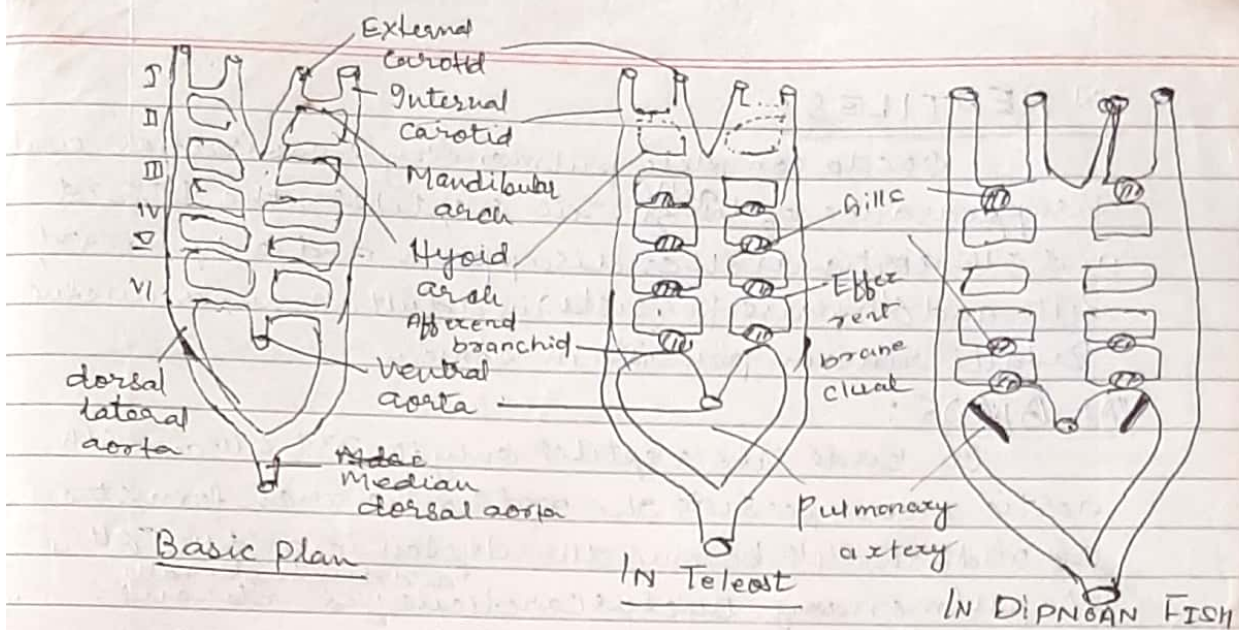 External
Carotid
Internal
Carotid
Mandibular
arch
Hyoid
arch
Afferend
branchid
Ventral
aorta
dorsal
lateral
aorta
Median
dorsal aorta
I
II
III
IV
V
VI
Basic Plan
Gills
Effer
rent
branc
clual
Pulmonary
artery
IN Teleost
IN DIPNOAN FISH